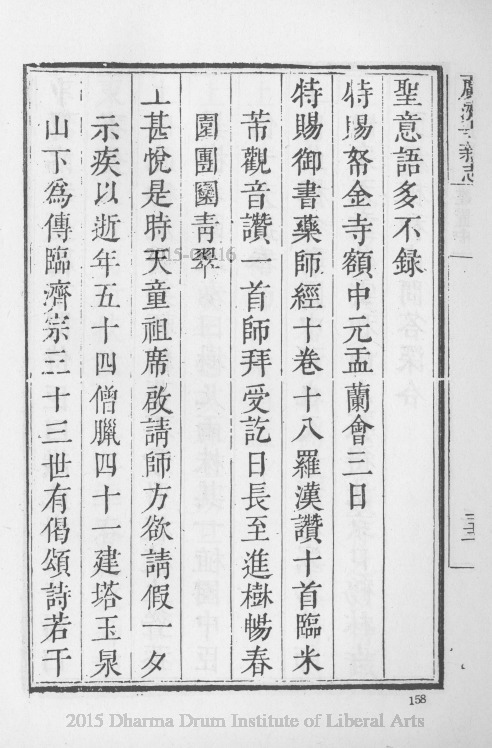 廣濟寺新志
三二
聖意語多不錄
特賜帑金寺額中元盂蘭會三日
特賜御書藥師經十卷十八羅漢讚十首臨米
芾觀音讚 首師拜受訖日長至進樹暢春
園團圞青翠
上甚悅是時天童祖席啟請師方欲請假一夕
示疾以逝年五十四僧臘四十一建塔玉泉
山下為傳臨濟宗三十三世有偈頌詩若干
158
2015 Dharma Drum Institute of Liberal Arts